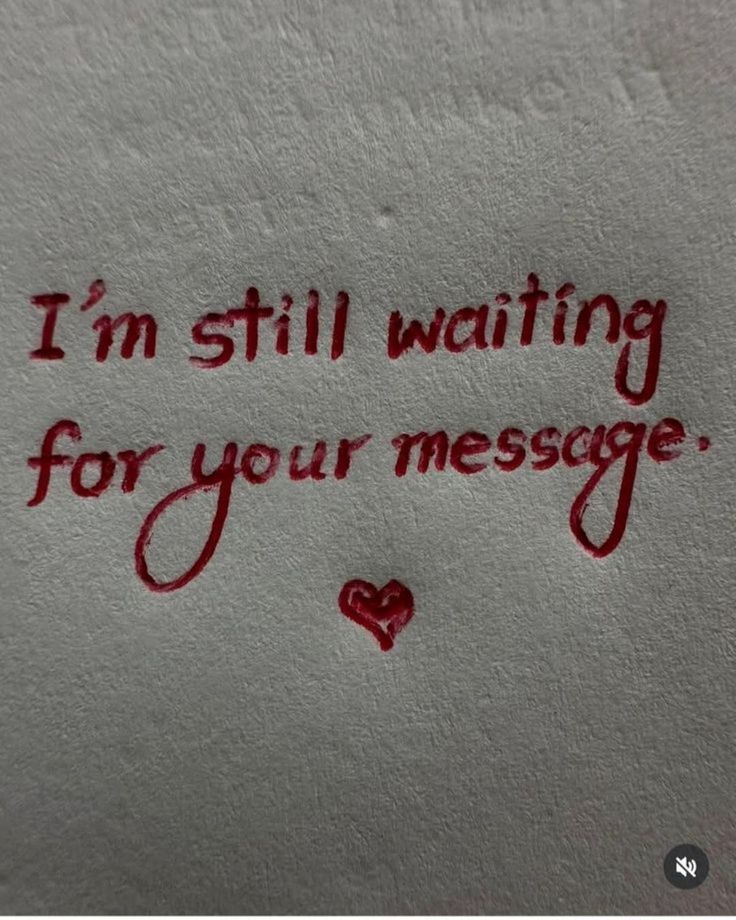 I'm still waiting
for your message.